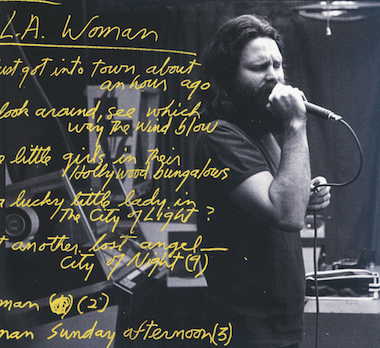 L.A. Woman
ust got into town about
an hour ago
look around, see which
way the wind blow
e little girls in their
Hollywood bungalows
a lucky little lady in
The City of Light?
t another lost angel—
City of Night (7)
man (2)
man Sunday afternoon (3)